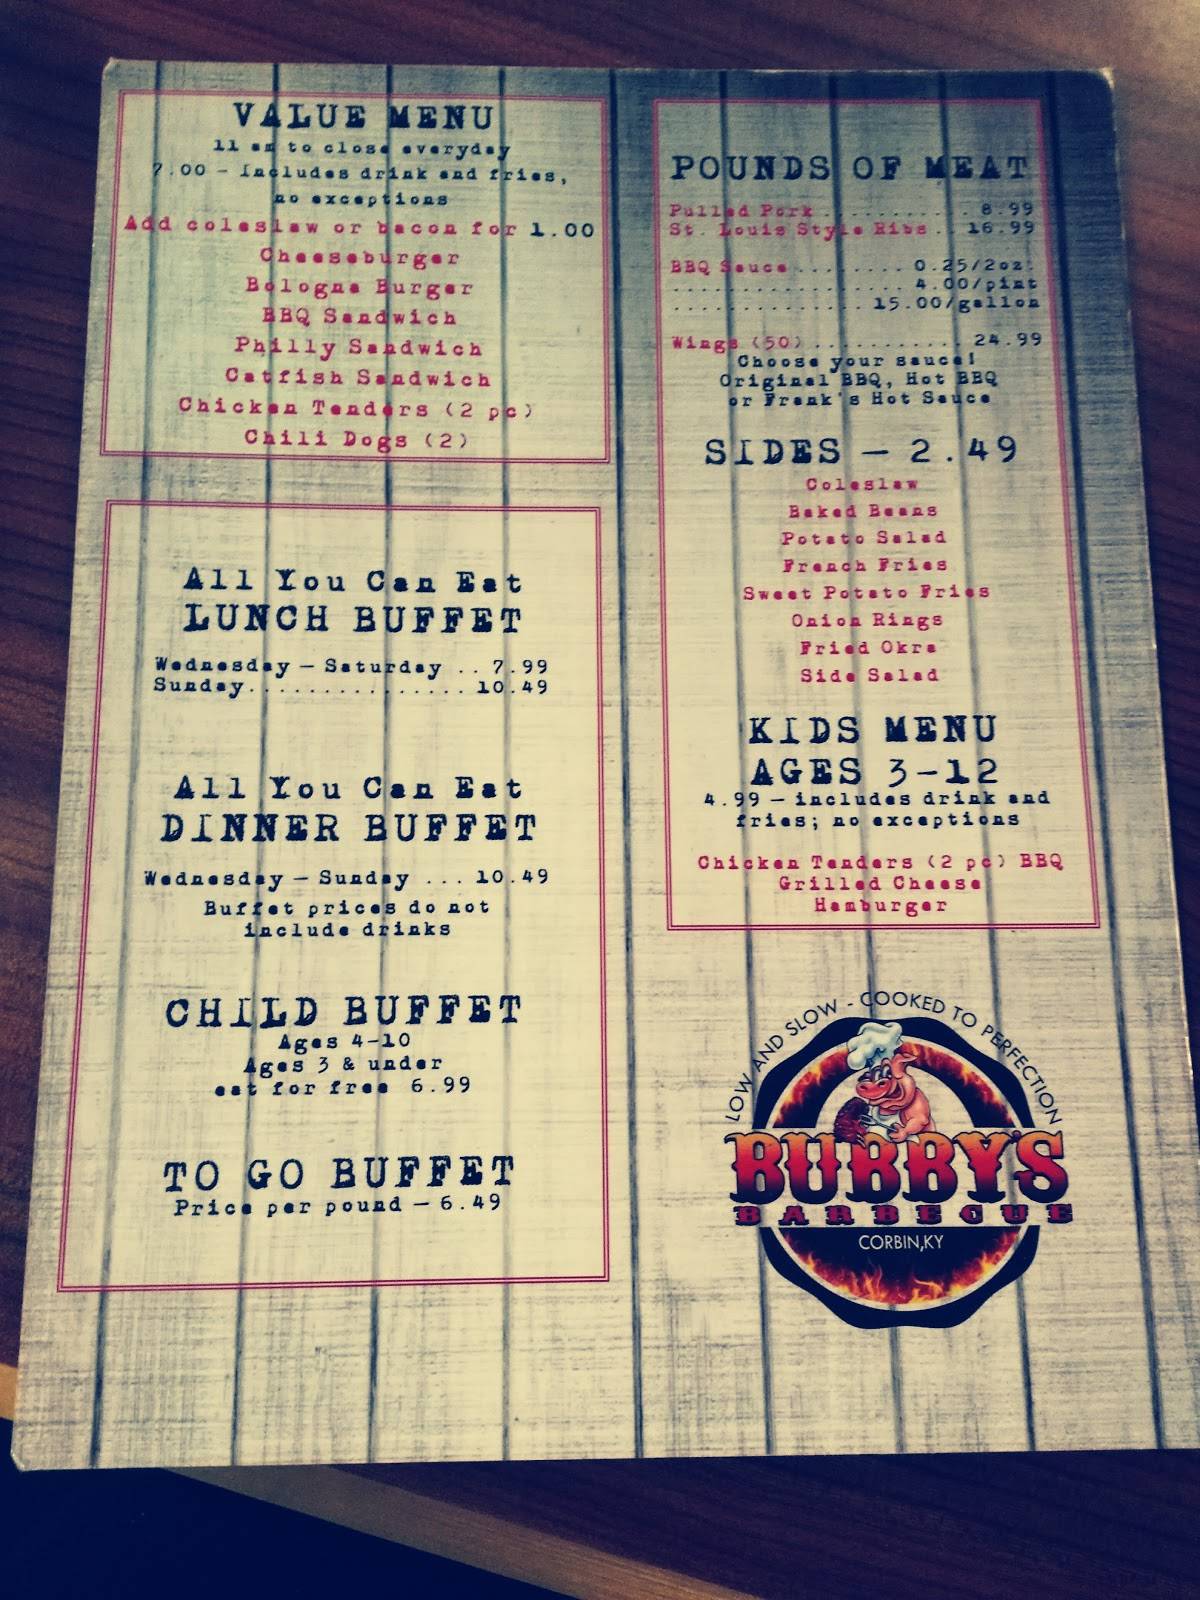 VALUE MENU
11 am to close everyday
7.00 - Includes drink and fries,
no exceptions
Add coleslaw or bacon for 1.00
Cheeseburger
Bologna Burger
BBQ Sandwich
Philly Sandwich
Catfish Sandwich
Chicken Tenders (2 pc)
Chili Dogs (2)
All You Can Eat
LUNCH BUFFET
Wednesday - Saturday .. 7.99
Sunday............... 10.49
All You Can Eat
DINNER BUFFET
Wednesday - Sunday ... 10.49
Buffet prices do not
include drinks
CHILD BUFFET
Ages 4-10
Ages 3 & under
eat for free 6.99
TO GO BUFFET
Price per pound - 6.49
POUNDS OF MEAT
Pulled Pork ........... 8.99
St. Louis Style Ribs .. 16.99
BBQ Sauce ........ 0.25/2oz.
................. 4.00/pint
.............. 15.00/gallon
Wings (50) ........... 24.99
Choose your sauce!
Original BBQ, Hot BBQ
or Frank's Hot Sauce
SIDES - 2.49
Coleslaw
Baked Beans
Potato Salad
French Fries
Sweet Potato Fries
Onion Rings
Fried Okra
Side Salad
KIDS MENU
AGES 3-12
4.99 - includes drink and
fries; no exceptions
Chicken Tenders (2 pc) BBQ
Grilled Cheese
Hamburger
LOW AND SLOW - COOKED TO PERFECTION
BUBBY'S
BARBECUE
CORBIN,KY